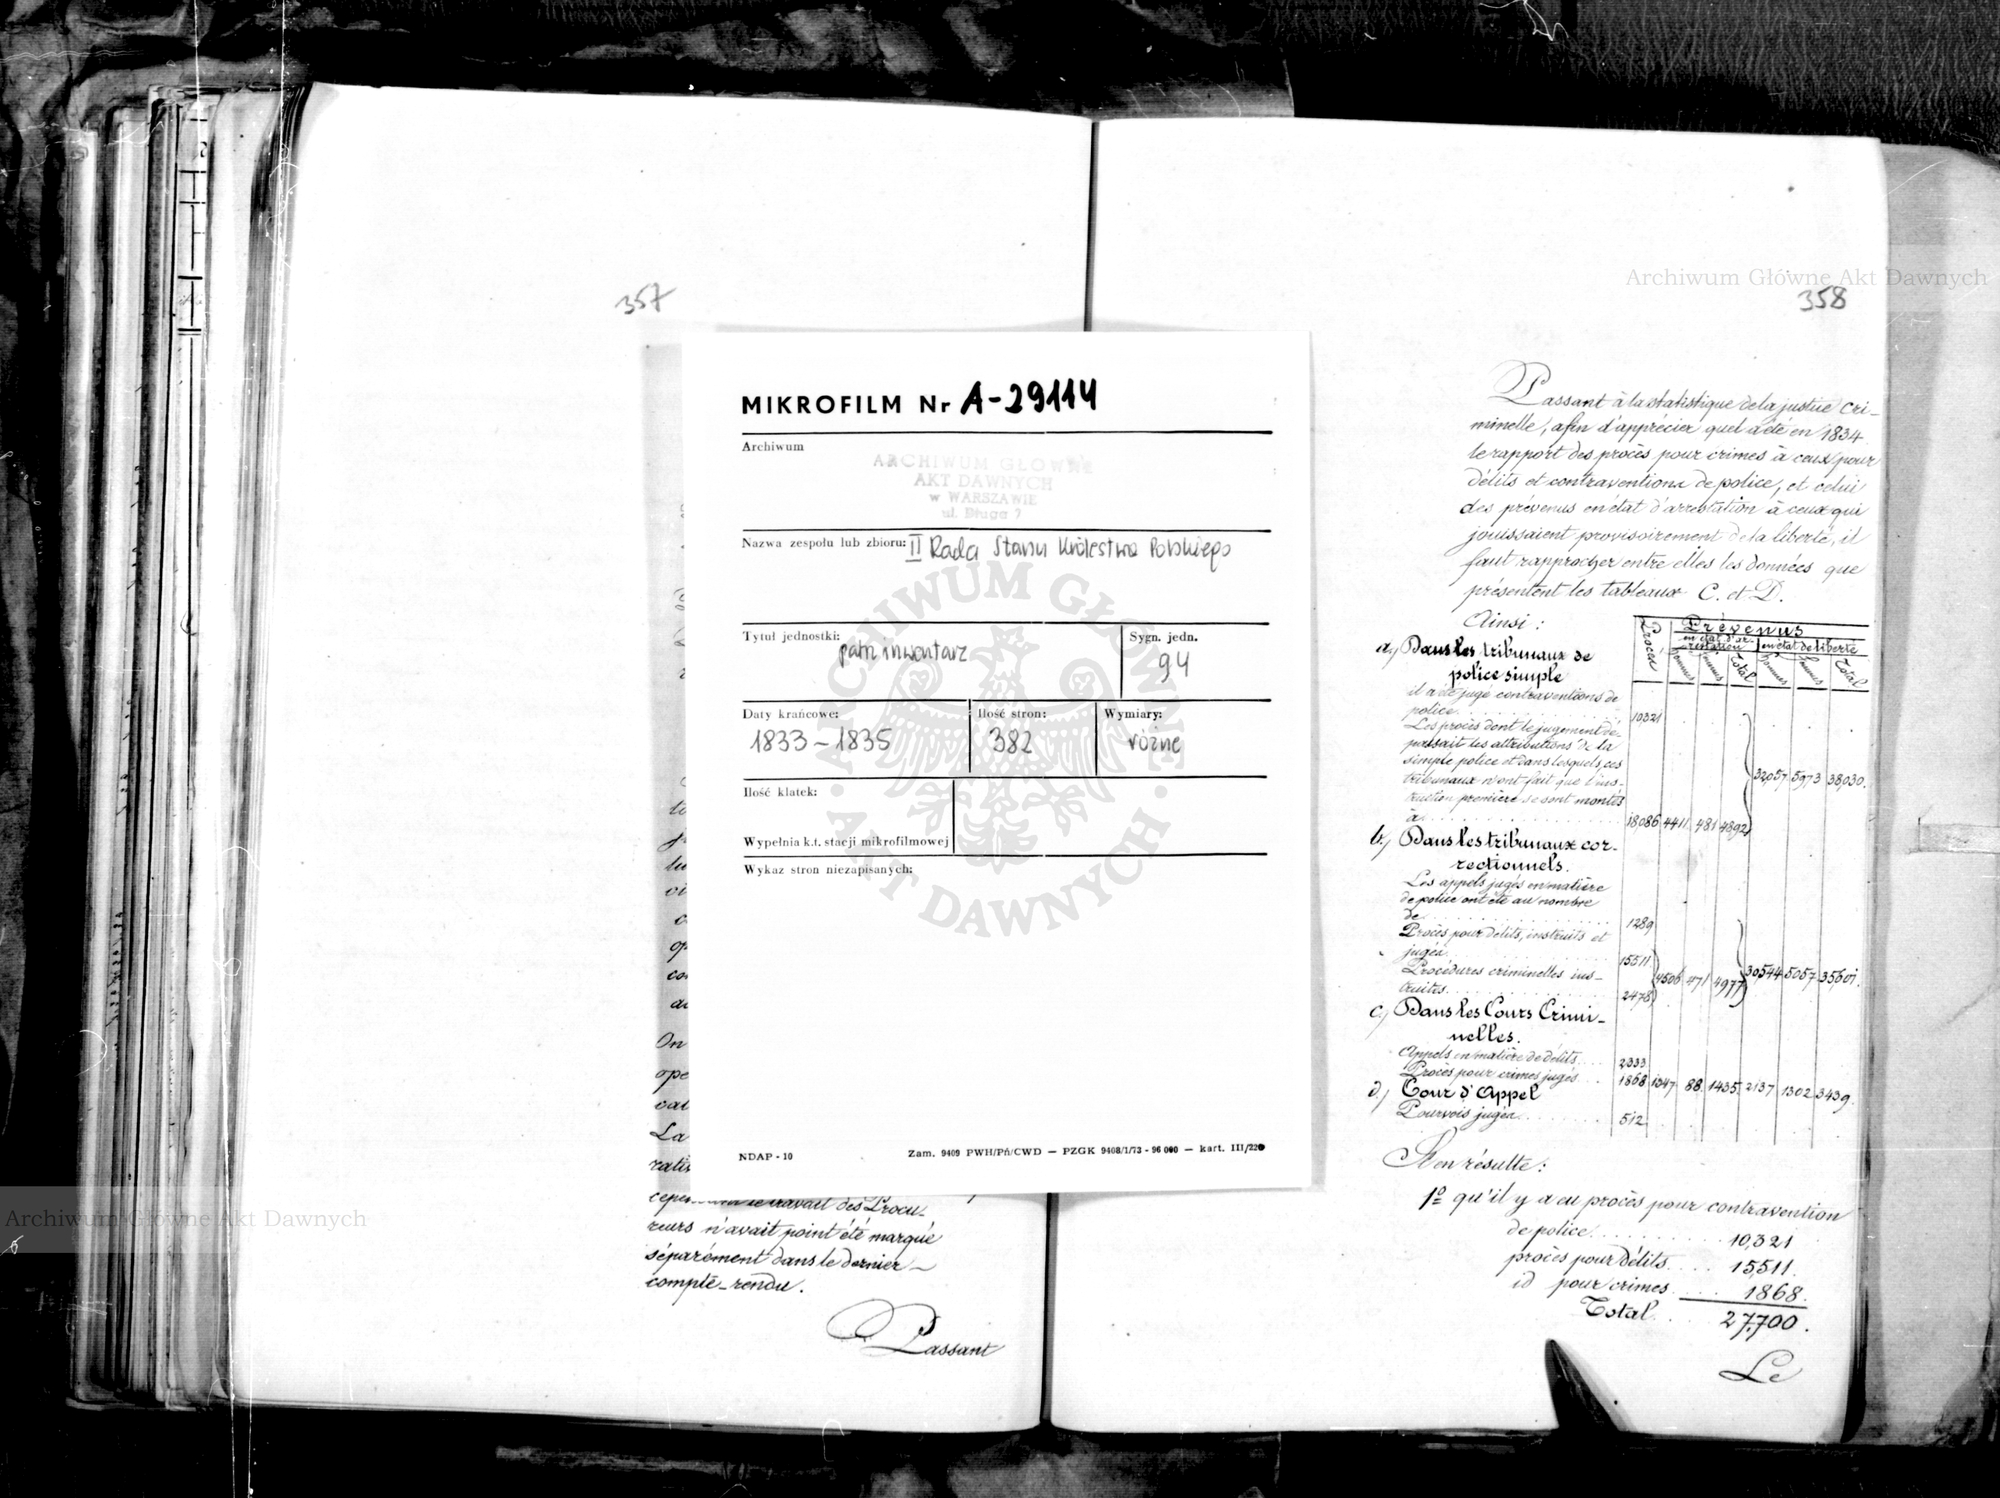 357
MIKROFILM Nr A-29114
Archiwum
ARCHIWUM GŁÓWNE
AKT DAWNYCH
w WARSZAWIE
ul. Długa 7
Nazwa zespołu lub zbioru: II Rada Stanu Królestwa Polskiego
Tytuł jednostki:
patrz inwentarz
Sygn. jedn.
94
Daty krańcowe:
1833-1835
Ilość stron:
382
Wymiary:
różne
Ilość klatek:
Wypełnia k.t. stacji mikrofilmowej
Wykaz stron niezapisanych:
NDAP - 10
Zam. 9409 PWH/Pń/CWD — PZGK 9408/1/73 - 96 000 — kart. III/220
On
ope
cat
La
le travail des Procu-
reurs n'avait point été marqué
séparément dans le dernier
compte-rendu.
Passant
Archiwum Główne Akt Dawnych
ARCHIWUM GŁÓWNE AKT DAWNYCH
Archiwum Główne Akt Dawnych
358
Passant à la statistique de la justice cri-
minelle, afin d'apprécier quel a été en 1834
le rapport des procès pour crimes à ceux pour
délits et contraventions de police, et celui
des prévenus en état d'arrestation à ceux qui
jouissaient provisoirement de la liberté, il
faut rapprocher entre elles les données que
présentent les tableaux C. et D.
Ainsi:
Procès
Prévenus
en état d'ar-
restation
en état de liberté
hommes femmes Total hommes femmes Total
a.) Dans les tribunaux de
police simple
il a été jugé contraventions de
police 10321
Les procès dont le jugement dé-
passait les attributions de la
simple police et dans lesquels, ces
tribunaux n'ont fait que l'ins- 32,057. 5973 38,030.
truction première se sont montés
à 18,086 4411. 481 4892
b.) Dans les tribunaux cor-
rectionnels.
Les appels jugés en matière
de police ont été au nombre
de 1289
Procès pour délits, instruits et
jugés 15511
Procédures criminelles ins- 4506 471 4977 30544 5057. 35,601.
truites 2478
c.) Dans les Cours Crimi-
nelles.
Appels en matière de délits 2333
Procès pour crimes jugés 1868 1347. 88. 1435. 2137 1302 3439.
d.) Cour d'Appel
Pourvois jugés 512
Il en résulte:
1º qu'il y a eu procès pour contravention
de police 10,321
procès pour délits 15,511.
id pour crimes 1868.
Total 27,700.
Le